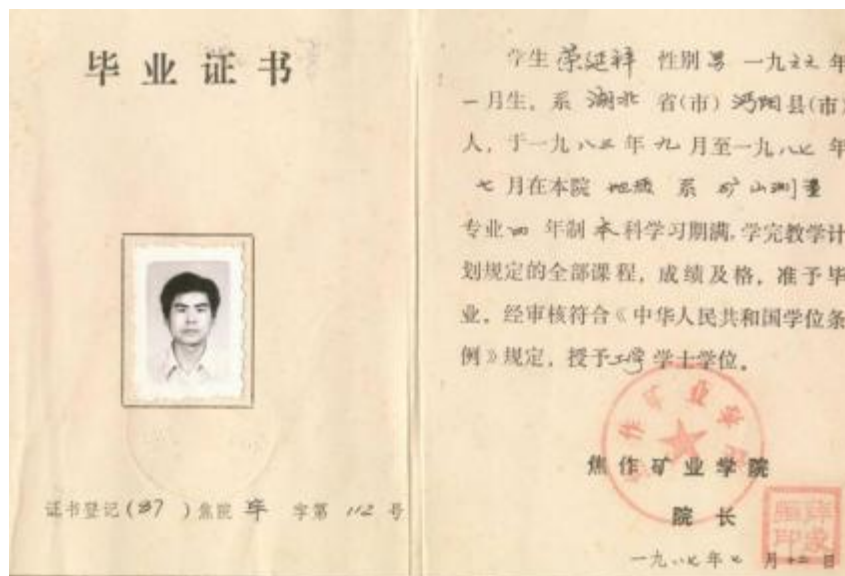 毕业证书
证书登记(87)焦院毕字第112号
学生荣延祥 性别男 一九六六年
一月生,系 湖北 省(市) 沔阳县(市)
人,于一九八三年九月至一九八七年
七月在本院 地质 系 矿山测量
专业四年制本科学习期满,学完教学计
划规定的全部课程,成绩及格,准予毕
业,经审核符合《中华人民共和国学位条
例》规定,授予工学学士学位。
焦作矿业学院
焦作矿业学院
院长
一九八七年七月十二日